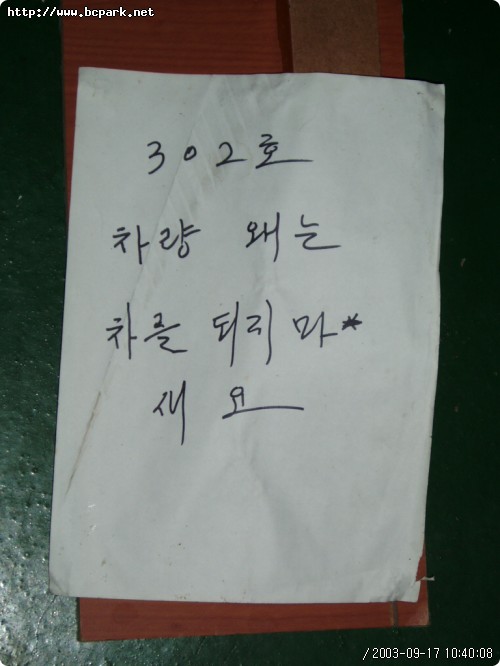 http://www.bcpark.net
302호
차량 왜는
차를 되지 마*
새요
/2003-09-17 10:40:08